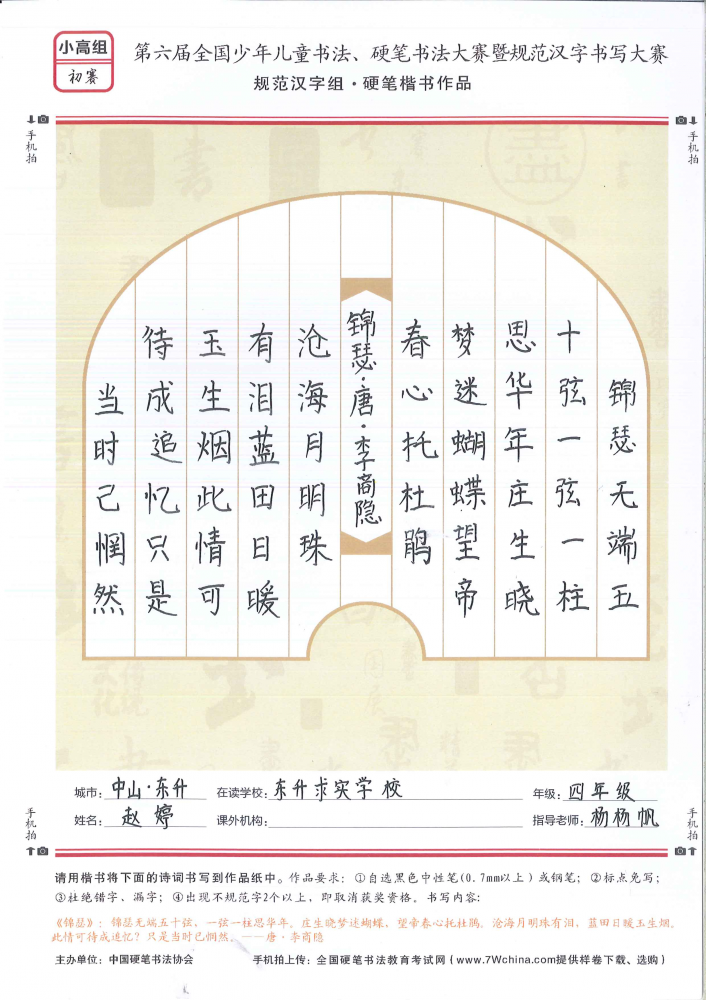 小高组
初赛
第六届全国少年儿童书法、硬笔书法大赛暨规范汉字书写大赛
规范汉字组·硬笔楷书作品
手机拍
手机拍
锦瑟无端五
十弦一弦一柱
思华年庄生晓
梦迷蝴蝶望帝
春心托杜鹃
锦瑟·唐·李商隐
沧海月明珠
有泪蓝田日暖
玉生烟此情可
待成追忆只是
当时己惘然
城市：中山·东升 在读学校：东升求实学校 年级：四年级
姓名：赵婷 课外机构： 指导老师：杨杨帆
手机拍
手机拍
请用楷书将下面的诗词书写到作品纸中。作品要求：①自选黑色中性笔(0.7mm以上)或钢笔；②标点免写；
③杜绝错字、漏字；④出现不规范字2个以上，即取消获奖资格。书写内容：
《锦瑟》：锦瑟无端五十弦，一弦一柱思华年。庄生晓梦迷蝴蝶，望帝春心托杜鹃。沧海月明珠有泪，蓝田日暖玉生烟。
此情可待成追忆？只是当时已惘然。——唐·李商隐
主办单位：中国硬笔书法协会 手机拍上传：全国硬笔书法教育考试网（www.7Wchina.com提供样卷下载、选购）